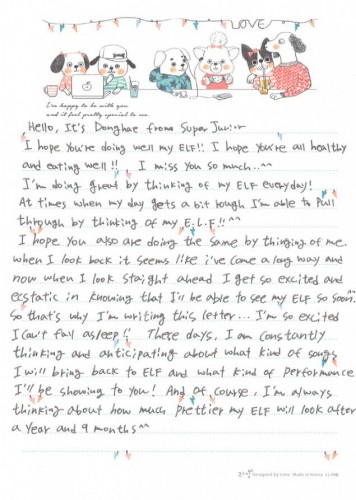 LOVE
I'm happy to be with you
and it feel pretty special to me.
Hello, It's Donghae froma Super Junior
I hope You're doing well my ELF!! I hope You're all healthy
and eating well!! I miss you so much..^^
I'm doing great by thinking of my ELF everyday!
At times when my day gets a bit tough I'm able to pull
through by thinking of my E.L.F!!^^
I hope You also are doing the same by thinging of me.
when I look back it seems like i've come a long way and
now when I look staight ahead I get so excited and
ecstatic in knowing that I'll be able to see my ELF so soon.^^
So that's why I'm writing this letter... I'm so excited
I can't fall asleep!! These days, I am constantly
thinking and anticipating about what kind of songs
I will bring back to ELF and what kind of performance
I'll be showing to you! And of course, I'm always
thinking about how much prettier my ELF will look after
a Year and 9 months^^
Designed by Livre. Made in Korea